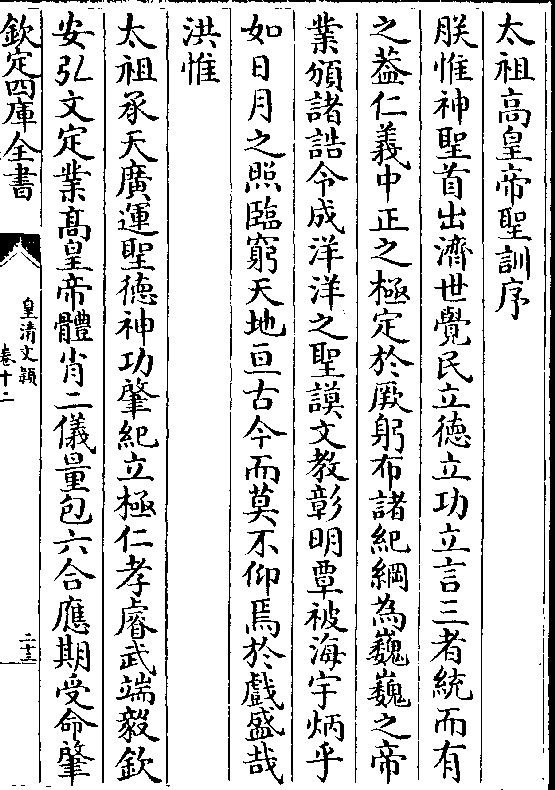 太祖高皇帝聖訓序
朕惟神聖首出濟世覺民立德立功立言三者統而有
之葢仁義中正之極定於厥躬布諸紀綱為巍巍之帝
業頒諸誥令成洋洋之聖謨文教彰明覃被海宇炳乎
如日月之照臨窮天地亘古今而莫不仰焉於戲盛哉
洪惟
太祖承天廣運聖德神功肇紀立極仁孝睿武端毅欽
安弘文定業高皇帝體肖二儀量包六合應期受命肇
欽定四庫全書
皇清文穎
卷十二
二十三